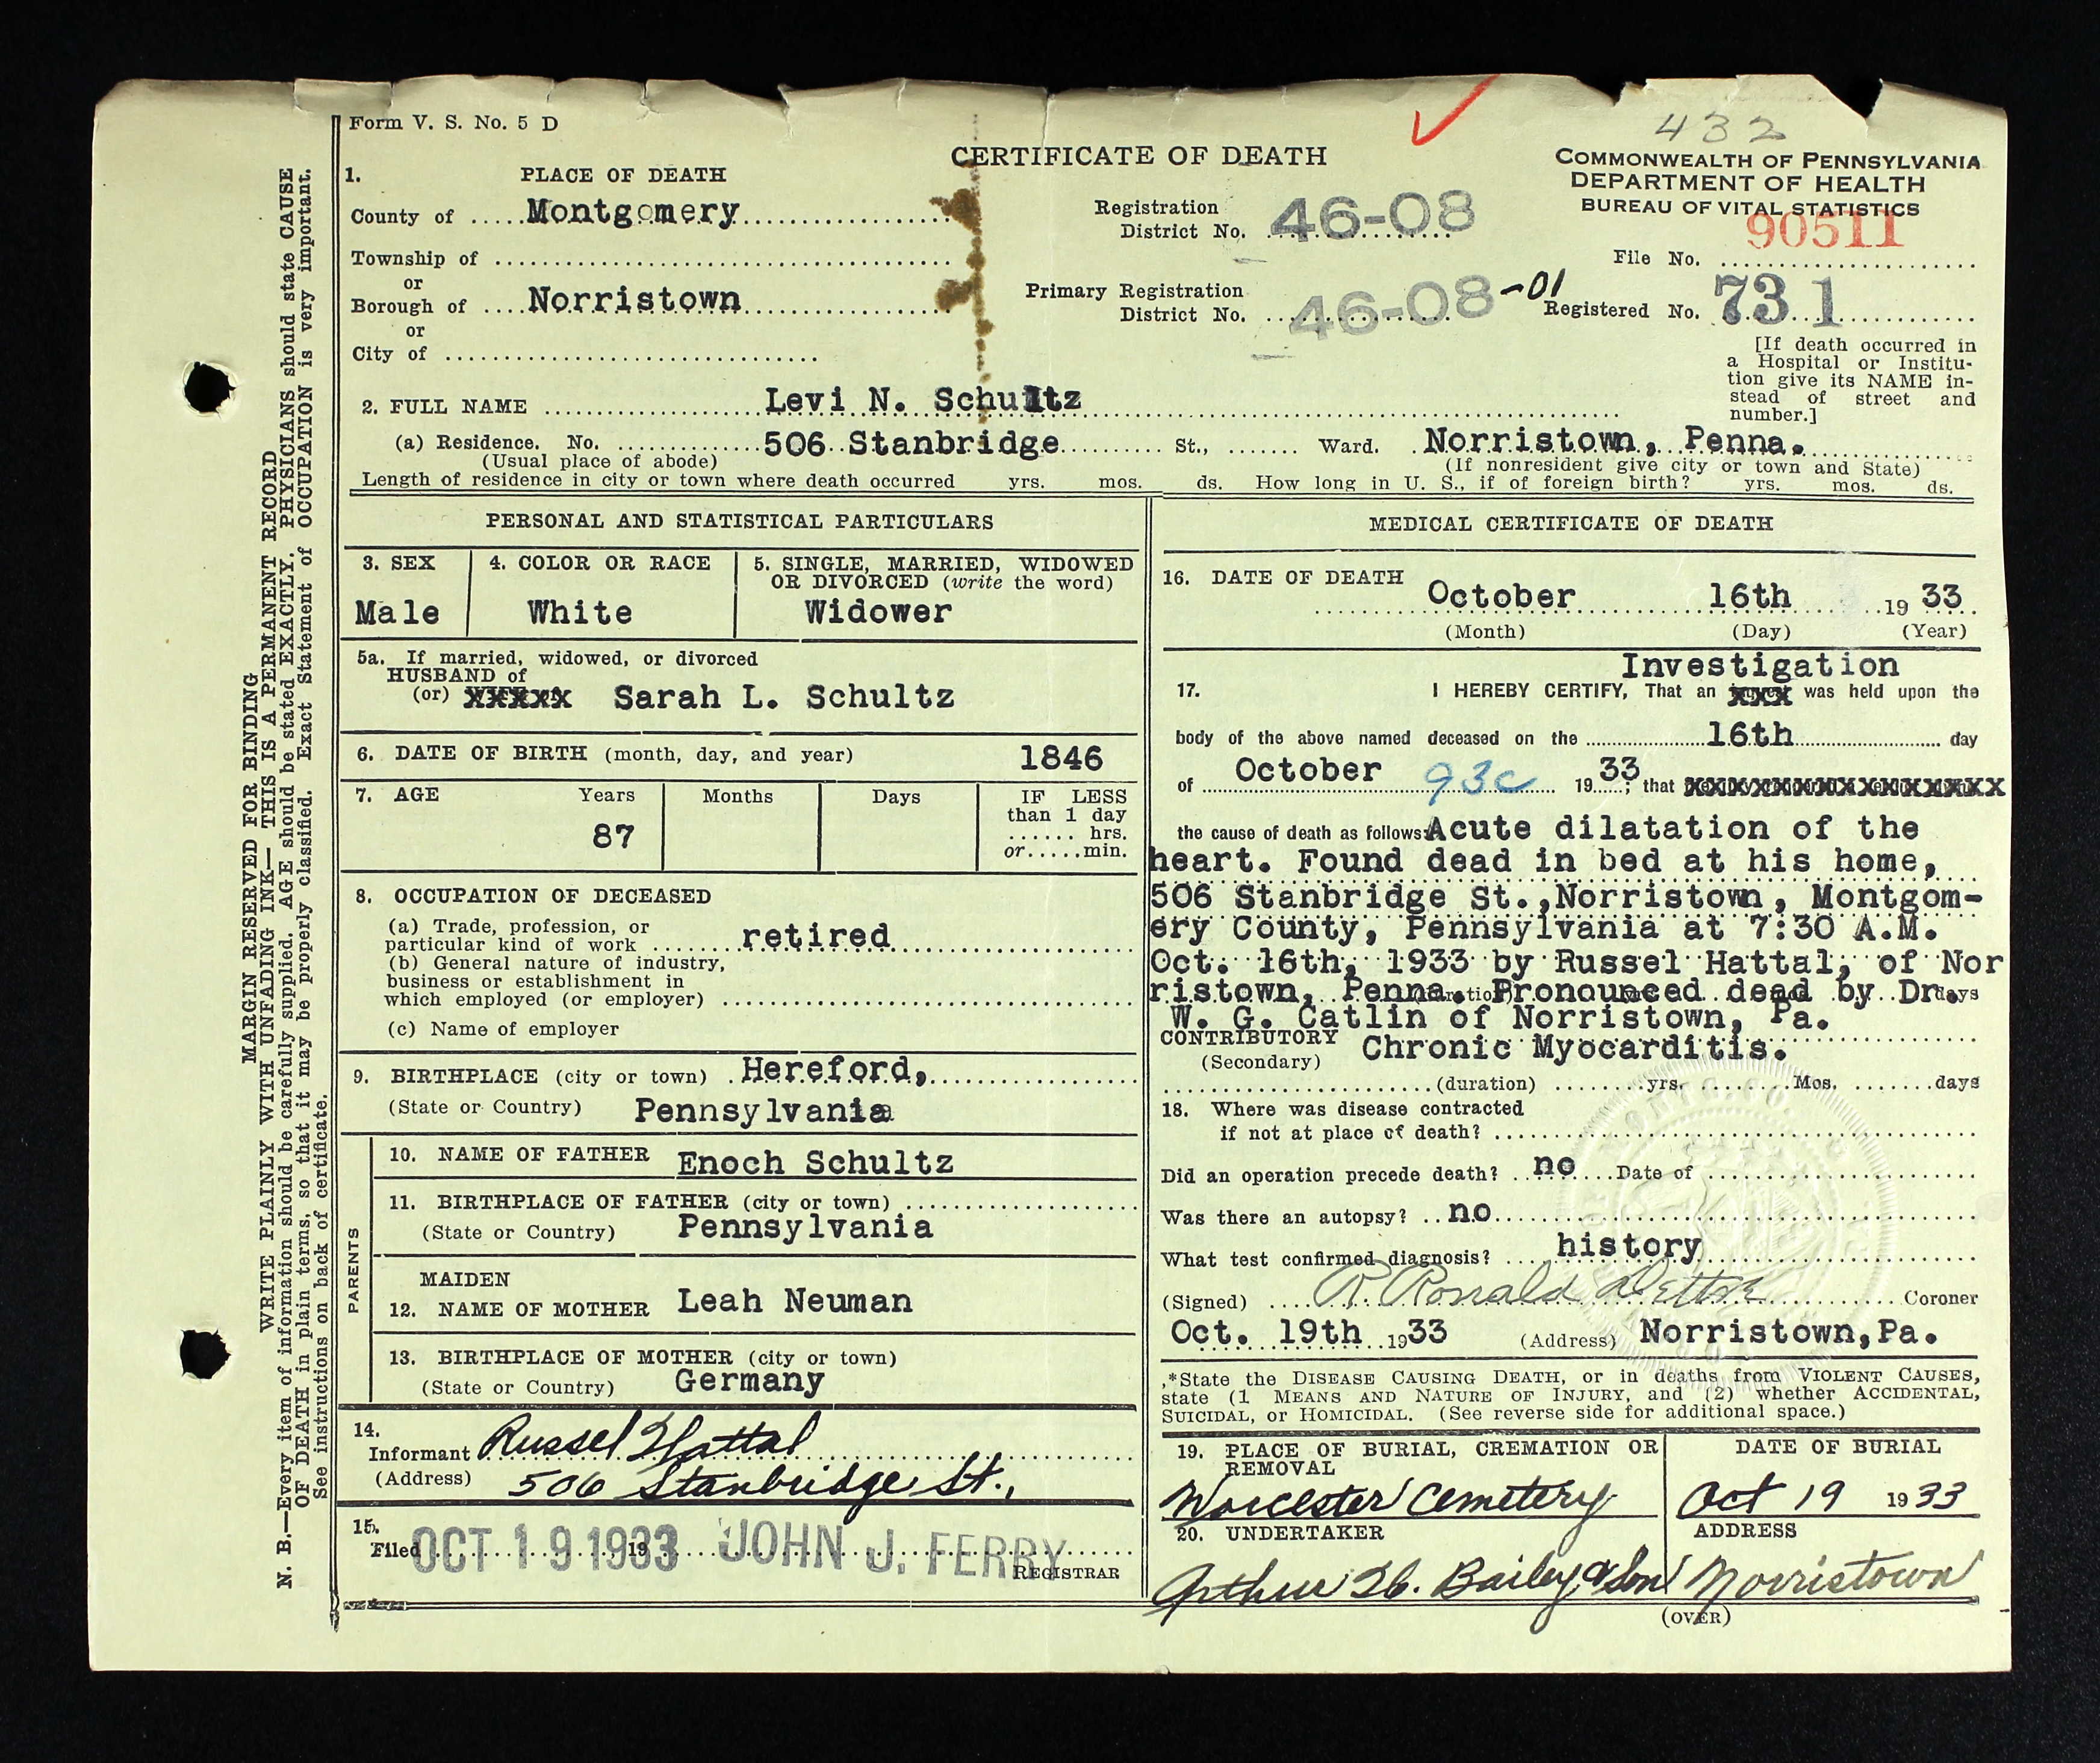 432
Form V. S. No. 5 D
CERTIFICATE OF DEATH
COMMONWEALTH OF PENNSYLVANIA
DEPARTMENT OF HEALTH
BUREAU OF VITAL STATISTICS
1. PLACE OF DEATH
County of Montgomery
Township of
or
Borough of Norristown
or
City of
Registration District No. 46-08
Primary Registration District No. 46-08-01
90511
File No.
Registered No. 731
[If death occurred in
a Hospital or Institu-
tion give its NAME in-
stead of street and
number.]
2. FULL NAME Levi N. Schultz
(a) Residence. No. 506 Stanbridge St., Ward. Norristown, Penna.
(Usual place of abode) (If nonresident give city or town and State)
Length of residence in city or town where death occurred yrs. mos. ds. How long in U. S., if of foreign birth? yrs. mos. ds.
PERSONAL AND STATISTICAL PARTICULARS
3. SEX
Male
4. COLOR OR RACE
White
5. SINGLE, MARRIED, WIDOWED
OR DIVORCED (write the word)
Widower
5a. If married, widowed, or divorced
HUSBAND of
(or) XXXXX Sarah L. Schultz
6. DATE OF BIRTH (month, day, and year) 1846
7. AGE Years Months Days IF LESS
than 1 day
hrs.
or min.
87
8. OCCUPATION OF DECEASED
(a) Trade, profession, or
particular kind of work retired
(b) General nature of industry,
business or establishment in
which employed (or employer)
(c) Name of employer
9. BIRTHPLACE (city or town) Hereford,
(State or Country) Pennsylvania
PARENTS
10. NAME OF FATHER Enoch Schultz
11. BIRTHPLACE OF FATHER (city or town)
(State or Country) Pennsylvania
MAIDEN
12. NAME OF MOTHER Leah Neuman
13. BIRTHPLACE OF MOTHER (city or town)
(State or Country) Germany
14.
Informant Russel Hattal
(Address) 506 Stanbridge St.,
15.
Filed OCT 19 1933 19 JOHN J. FERRY
REGISTRAR
MEDICAL CERTIFICATE OF DEATH
16. DATE OF DEATH October 16th 19 33
(Month) (Day) (Year)
Investigation
17. I HEREBY CERTIFY, That an XXX was held upon the
body of the above named deceased on the 16th day
of October 93c 19 33; that XXXXXXXXXXXXXXXXX
the cause of death as follows: Acute dilatation of the
heart. Found dead in bed at his home,
506 Stanbridge St., Norristown, Montgom-
ery County, Pennsylvania at 7:30 A.M.
Oct. 16th, 1933 by Russel Hattal, of Nor
ristown, Penna. Pronounced dead by Dr. days
W. G. Catlin of Norristown, Pa.
CONTRIBUTORY Chronic Myocarditis.
(Secondary)
(duration) yrs. Mos. days
18. Where was disease contracted
if not at place of death?
Did an operation precede death? no Date of
Was there an autopsy? no
What test confirmed diagnosis? history
(Signed) R. Ronald Coroner
Oct. 19th 1933 (Address) Norristown, Pa.
*State the DISEASE CAUSING DEATH, or in deaths from VIOLENT CAUSES,
state (1 MEANS AND NATURE OF INJURY, and (2) whether ACCIDENTAL,
SUICIDAL, or HOMICIDAL. (See reverse side for additional space.)
19. PLACE OF BURIAL, CREMATION OR
REMOVAL
Worcester Cemetery
DATE OF BURIAL
Oct 19 1933
20. UNDERTAKER
Arthur H. Bailey & Son
ADDRESS
Norristown
(OVER)
MARGIN RESERVED FOR BINDING
WRITE PLAINLY WITH UNFADING INK— THIS IS A PERMANENT RECORD
N. B.—Every item of information should be carefully supplied. AGE should be stated EXACTLY. PHYSICIANS should state CAUSE
OF DEATH in plain terms, so that it may be properly classified. Exact Statement of OCCUPATION is very important.
See instructions on back of certificate.